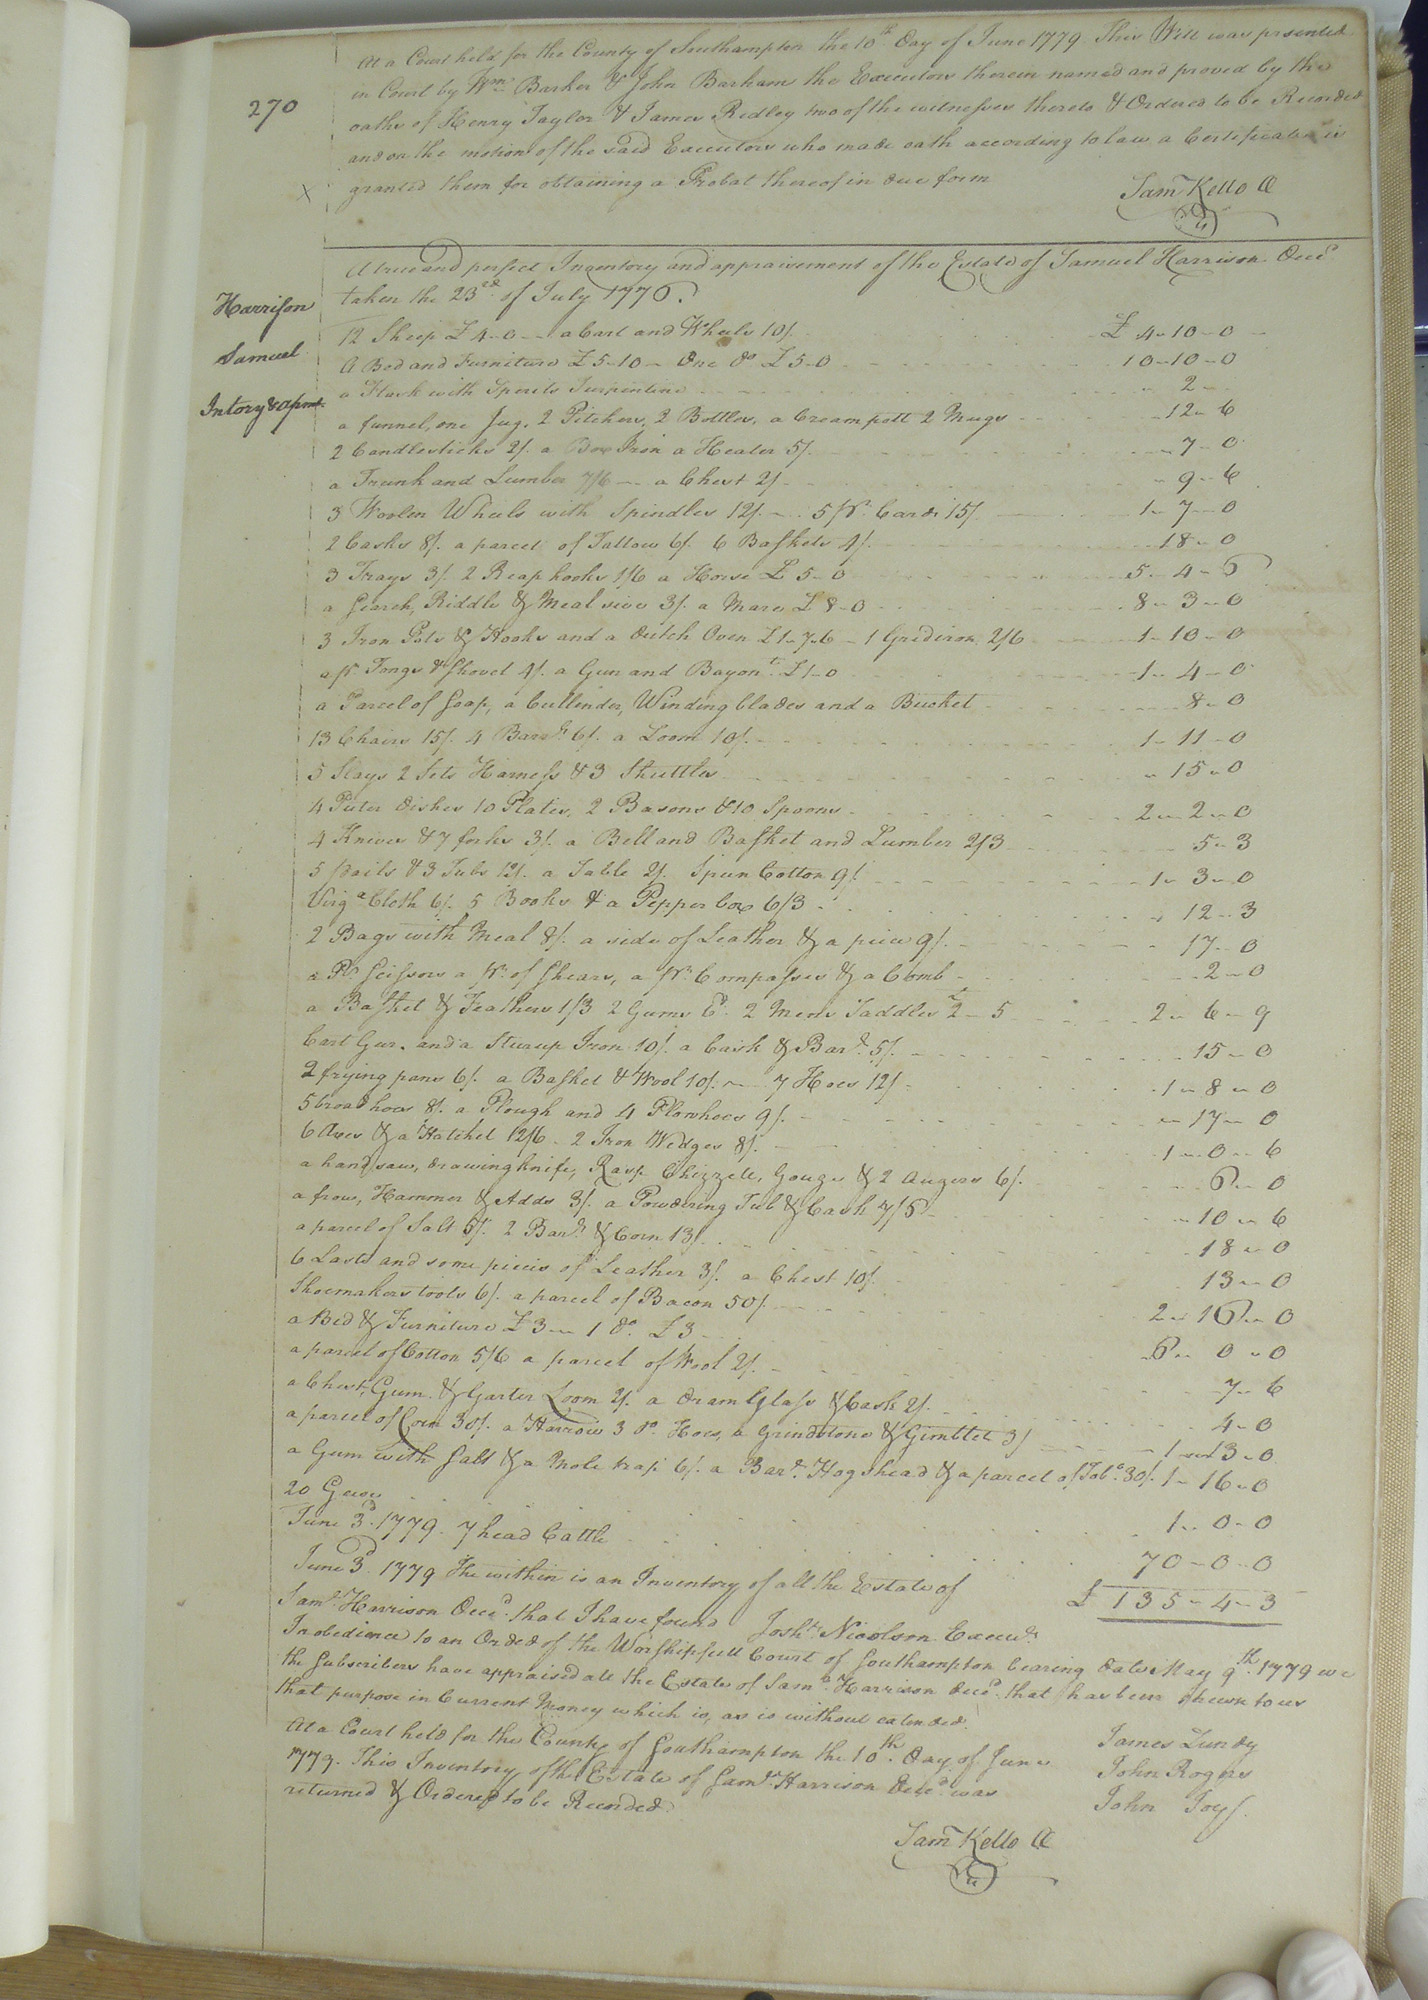 270
At a Court held for the County of Southampton the 10th Day of June 1779. This Will was presented
in Court by Wm. Barker & John Barham the Executors therein named and proved by the
oaths of Henry Taylor & James Ridley two of the witnesses thereto & Ordered to be Recorded
and on the motion of the said Executors who made oath according to law a Certificate is
granted them for obtaining a Probat thereof in due form
X
Saml Kello CC
Harrison
Samuel
Intory & Apmt.
A true and perfect Inventory and appraisement of the Estate of Samuel Harrison Decd
taken the 23rd of July 1776.
12 Sheep £4-0 - a Cart and Wheels 10/. £ 4-10-0
A Bed and Furniture £5-10 - One Do £5-0 10-10-0
a Flask with Spirits Turpentine 2-
a funnel, one Jug, 2 Pitchers, 2 Bottles, a Cream pott 2 Mugs 12-6
2 Candlesticks 2/. a Box Iron a Heater 5/. 7-0
a Trunk and Lumber 7/6 - a Chest 2/. 9-6
3 Woolen Wheels with Spindles 12/. - 5 pr. Cards 15/. 1-7-0
2 Casks 8/. a parcel of Tallow 6/. 6 Baskets 4/. 18-0
3 Trays 3/. 2 Reap hooks 1/6 a Horse £5-0 5-4-6
a Search, Riddle & Meal sive 3/. a Mare £8-0 8-3-0
3 Iron Pots & Hooks and a Dutch Oven £1-7-6 - 1 Gridiron 2/6 1-10-0
a pr Tongs & Shovel 4/. a Gun and Bayont. £1-0 1-4-0
a Parcel of Soap, a Cullender, Winding blades and a Bucket 8-0
13 Chairs 15/. 4 Barrs. 6/. a Loom 10/. 1-11-0
5 Slays 2 Sets Harness & 3 Shuttles 15-0
4 Puter dishes 10 Plates, 2 Basons & 10 Spoons 2-2-0
4 Knives & 7 forks 3/. a Bell and Basket and Lumber 2/3 5-3
5 pails & 3 Tubs 12/. a Table 2/. Spun Cotton 9/. 1-3-0
Virga. Cloth 6/. 5 Books & a Pepper box 6/3. 12-3
2 Bags with Meal 8/. a side of Leather & a piece 9/. 17-0
a Pr. Scissors a pr. of Shears, a pr. Compasses & a Comb 2-0
a Basket & Feathers 1/3 2 Gums 2 Mens Saddles £2-5 2-6-9
Cart Gur. and a Sturup Iron 10/. a Cask & Barl. 5/. 15-0
2 frying pans 6/. a Basket & Wool 10/. - 7 Hoes 12/. 1-8-0
5 broad hoes 8/. a Plough and 4 Plowhoes 9/. 17-0
6 Axes & a Hatchet 12/6 - 2 Iron Wedges 8/. 1-0-6
a hand saw, drawing knife, Rasp Chizzele, Gouge & 2 Augers 6/. 6-0
a frow, Hammer & Adds 3/. a Powdering Tub & Cask 7/6 10-6
a parcel of Salt 5/. 2 Barls. & Corn 13/. 18-0
6 Lasts and some pieces of Leather 3/. a Chest 10/. 13-0
Shoemakers tools 6/. a parcel of Bacon 50/. 2-16-0
a Bed & Furniture £3 - 1 Do. £3 6-0-0
a parcel of Cotton 5/6 a parcel of Wool 2/. 7-6
a Chest, Gum & Garter Loom 2/. a dram Glass & Cask 2/. 4-0
a parcel of Corn 30/. a Harrow 3 Do. Hoes, a Grindstone & Gimblet 3/ 1-13-0
a Gum with Salt & a Mole trap 6/. a Barl. Hogshead & a parcel of Tobo. 30/. 1-16-0
20 Geese 1-0-0
June 3d. 1779. 7 head Cattle 70-0-0
£ 135-4-3
June 3d. 1779 The within is an Inventory of all the Estate of
Saml. Harrison Decd. that I have found Josha. Nicolson Execur.
In obedience to an Order of the Worshipfull Court of Southampton bearing date May 9th. 1779 we
the Subscribers have appraised all the Estate of Saml. Harrison decd. that has been shewn to us
that purpose in Current Money which is, as is without extended.
James Lundy
John Rogers
John Joyf.
At a Court held for the County of Southampton the 10th. Day of June
1779. This Inventory of the Estate of Saml. Harrison Decd. was
returned & Ordered to be Recorded
Saml Kello CC